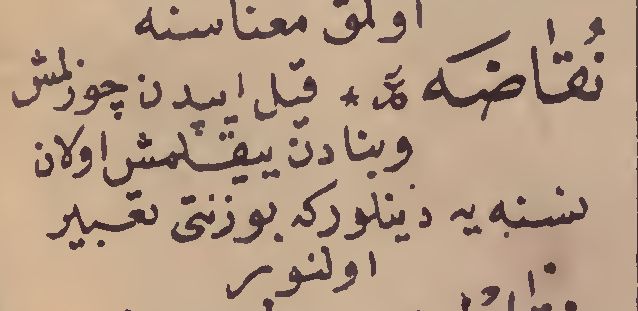 اولمق معناسنه
نُقٰاضه * قیل ایپدن چوزلمش
وبنادن ییقلمش اولان
نسنه یه دینلورکه بوزنتی تعبیر
اولنور